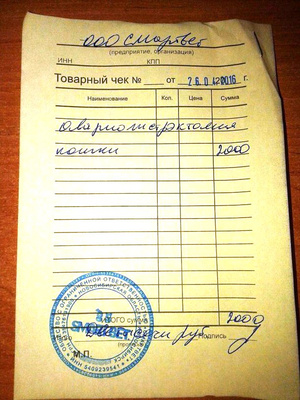 ООО Смартвет
(предприятие, организация)
ИНН КПП
Товарный чек № от 2016 г.
Наименование Кол. Цена Сумма
Овариогистерэктомия
кошки 2000
ВСЕГО сумма 2000
Две тысячи руб. Подпись
М.П.
SMARTВЕТ